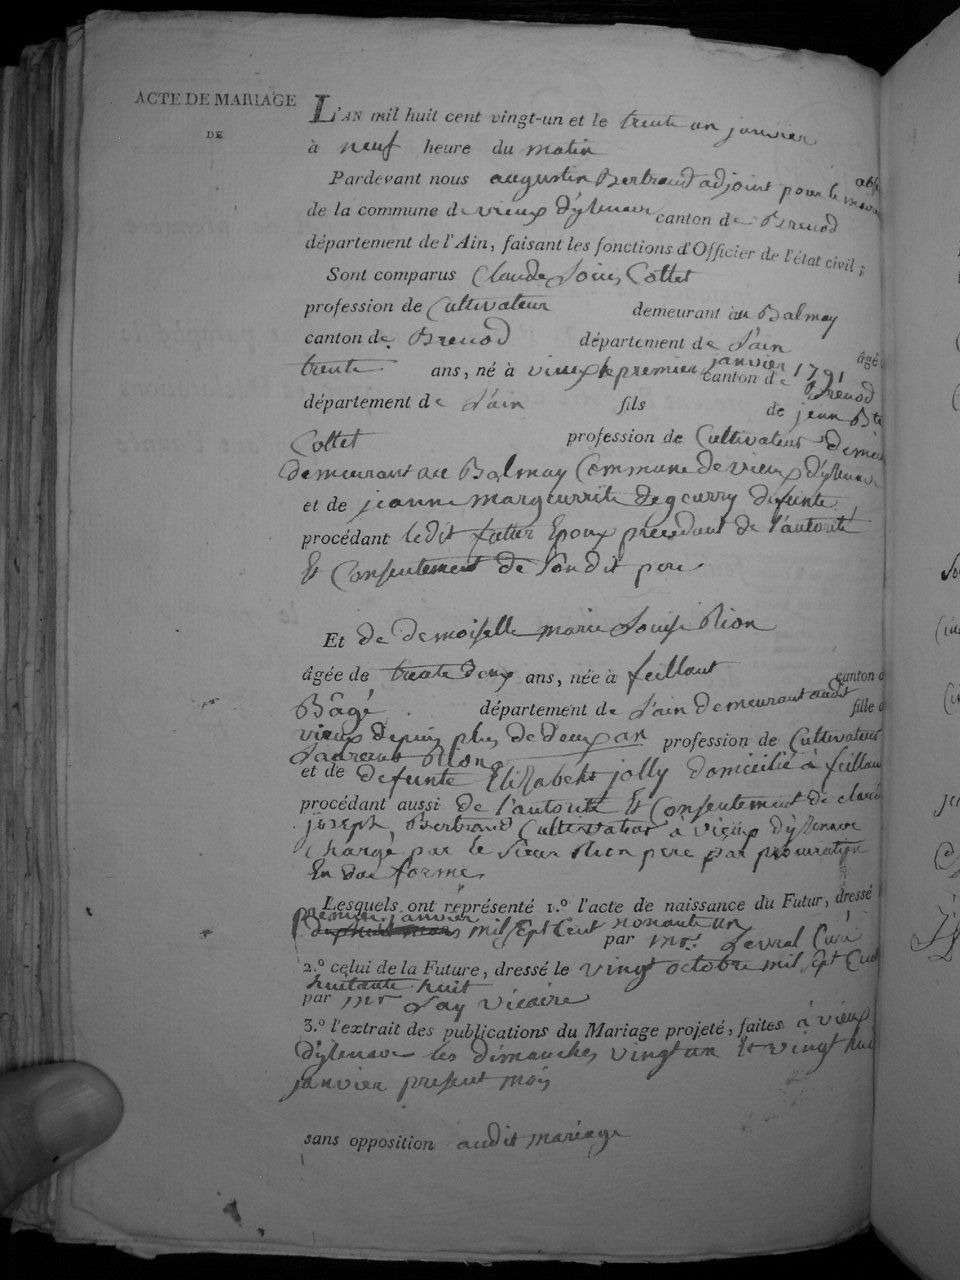 ACTE DE MARIAGE
DE
L'AN mil huit cent vingt-un et le trente un janvier
à neuf heure du matin
Pardevant nous augustin Bertrand adjoint pour le maire abs
de la commune de vieux d'yzenave canton de Brenod
département de l'Ain, faisant les fonctions d'Officier de l'état civil;
Sont comparus Claude Louis Cottet
profession de Cultivateur demeurant au Balmay
canton de Brenod département de L'ain
âgé
trente ans, né à vieux le premier janvier 1791 canton de Brenod
département de L'ain fils de jean Bte
Cottet profession de Cultivateur
demeurant au Balmay Commune de vieux d'yzenave
et de jeanne margueritte defunte
procédant ledit futur Epoux procedant de l'autorité
Et Consentement de Son dit pere
Et de demoiselle marie Louise Rion
âgée de trente deux ans, née à feillant canton d
Bâgé département de L'ain demeurant audit fille d
vieux depuis plus de deux an profession de Cultivateur
Laurent Rion
et de defunte Elizabeth jolly domicilié à feillan
procédant aussi de l'autorité Et Consentement de claud
joseph Bertrand Cultivateur à vieux d'yzenave
Chargé par le Sieur Rion pere par procuration
En due forme
Lesquels ont représenté 1.º l'acte de naissance du Futur, dressé
premier janvier
mil sept Cent nonante un
par mr. Curé
2.º celui de la Future, dressé le vingt octobre mil sept Cent
huitante huit
par mr Lay vicaire
3.º l'extrait des publications du Mariage projeté, faites à vieux
d'yzenave les dimanches vingt un Et vingt huit
janvier present mois
sans opposition audit mariage